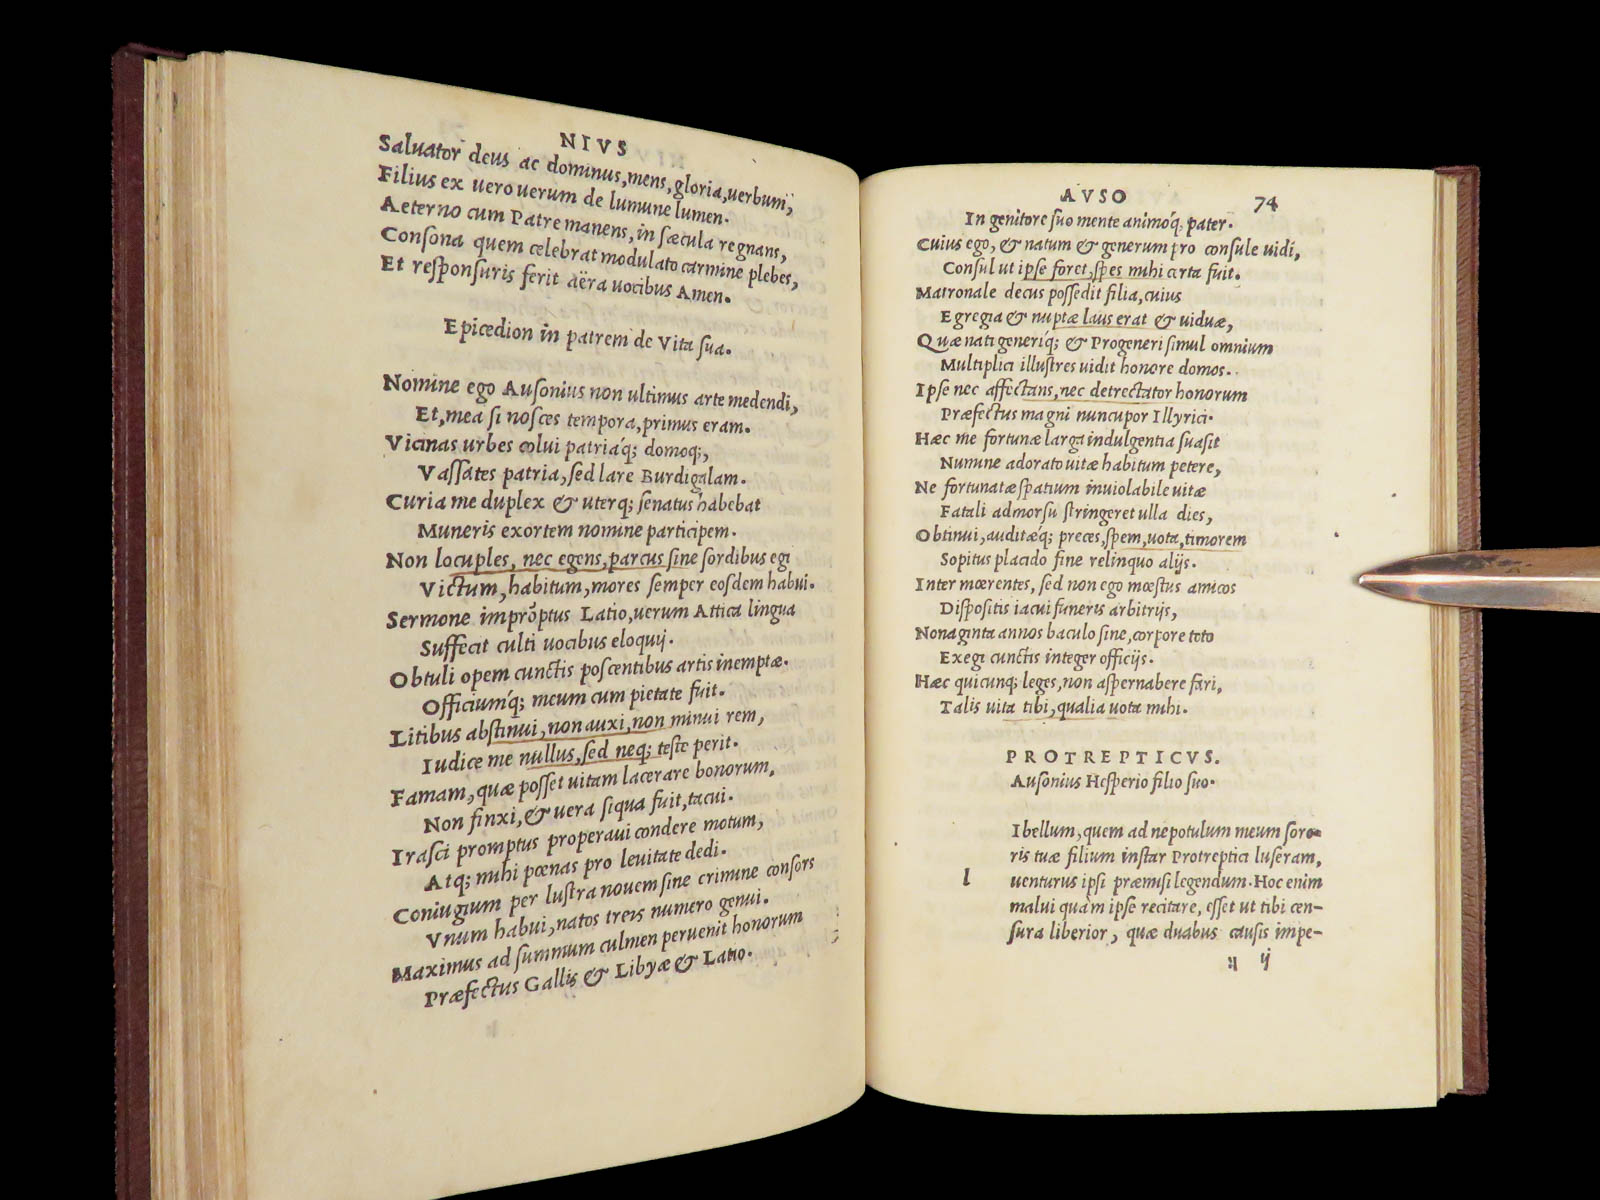 NIVS
Saluator deus ac dominus, mens, gloria, uerbum,
Filius ex uero uerum de lumine lumen.
Aeterno cum Patre manens, in sæcula regnans,
Consona quem celebrat modulato carmine plebes,
Et responsuris ferit aëra uocibus Amen.
Epicedion in patrem de Vita sua.
Nomine ego Ausonius non ultimus arte medendi,
Et, mea si nosces tempora, primus eram.
Vicinas urbes colui patriaq́; domoq;,
Vassates patria, sed lare Burdigalam.
Curia me duplex & uterq; senatus habebat
Muneris exortem nomine participem.
Non locuples, nec egens, parcus sine sordibus egi
Victum, habitum, mores semper eosdem habui.
Sermone imprōptus Latio, uerum Attica lingua
Suffecit culti uocibus eloquij.
Obtuli opem cunctis poscentibus artis inemptæ.
Officiumq́; meum cum pietate fuit.
Litibus abstinui, non auxi, non minui rem,
Iudice me nullus, sed neq; teste perit.
Famam, quæ posset uitam lacerare bonorum,
Non finxi, & uera siqua fuit, tacui.
Irasci promptus properaui condere motum,
Atq; mihi pœnas pro leuitate dedi.
Coniugium per lustra nouem sine crimine consors
Vnum habui, natos treis numero genui.
Maximus ad summum culmen peruenit honorum
Præfectus Gallis & Libyæ & Latio.
AVSO 74
In genitore suo mente animoq́; pater.
Cuius ego, & natum & generum pro consule uidi,
Consul ut ipse foret, spes mihi certa fuit.
Matronale decus possedit filia, cuius
Egregia & nuptæ laus erat & uiduæ,
Quæ nati generiq́; & Progeneri simul omnium
Multiplici illustres uidit honore domos.
Ipse nec affectans, nec detrectator honorum
Præfectus magni nuncupor Illyrici.
Hæc me fortunæ larga indulgentia suasit
Numine adorato uitæ habitum petere,
Ne fortunatæ spatium inuiolabile uitæ
Fatali admorsu stringeret ulla dies,
Obtinui, auditæq́; preces, spem, uota, timorem
Sopitus placido fine relinquo alijs.
Inter mœrentes, sed non ego mœstus amicos
Dispositis iacui funeris arbitrijs,
Nonaginta annos baculo sine, corpore toto
Exegi cunctis integer officijs.
Hæc quicunq; leges, non aspernabere fari,
Talis uita tibi, qualia uota mihi.
PROTREPTICVS.
Ausonius Hesperio filio suo.
l Ibellum, quem ad nepotulum meum soro-
ris tuæ filium instar Protreptici luseram,
uenturus ipsi præmisi legendum. Hoc enim
malui quàm ipse recitare, esset ut tibi cen-
sura liberior, quæ duabus causis impe-
ij